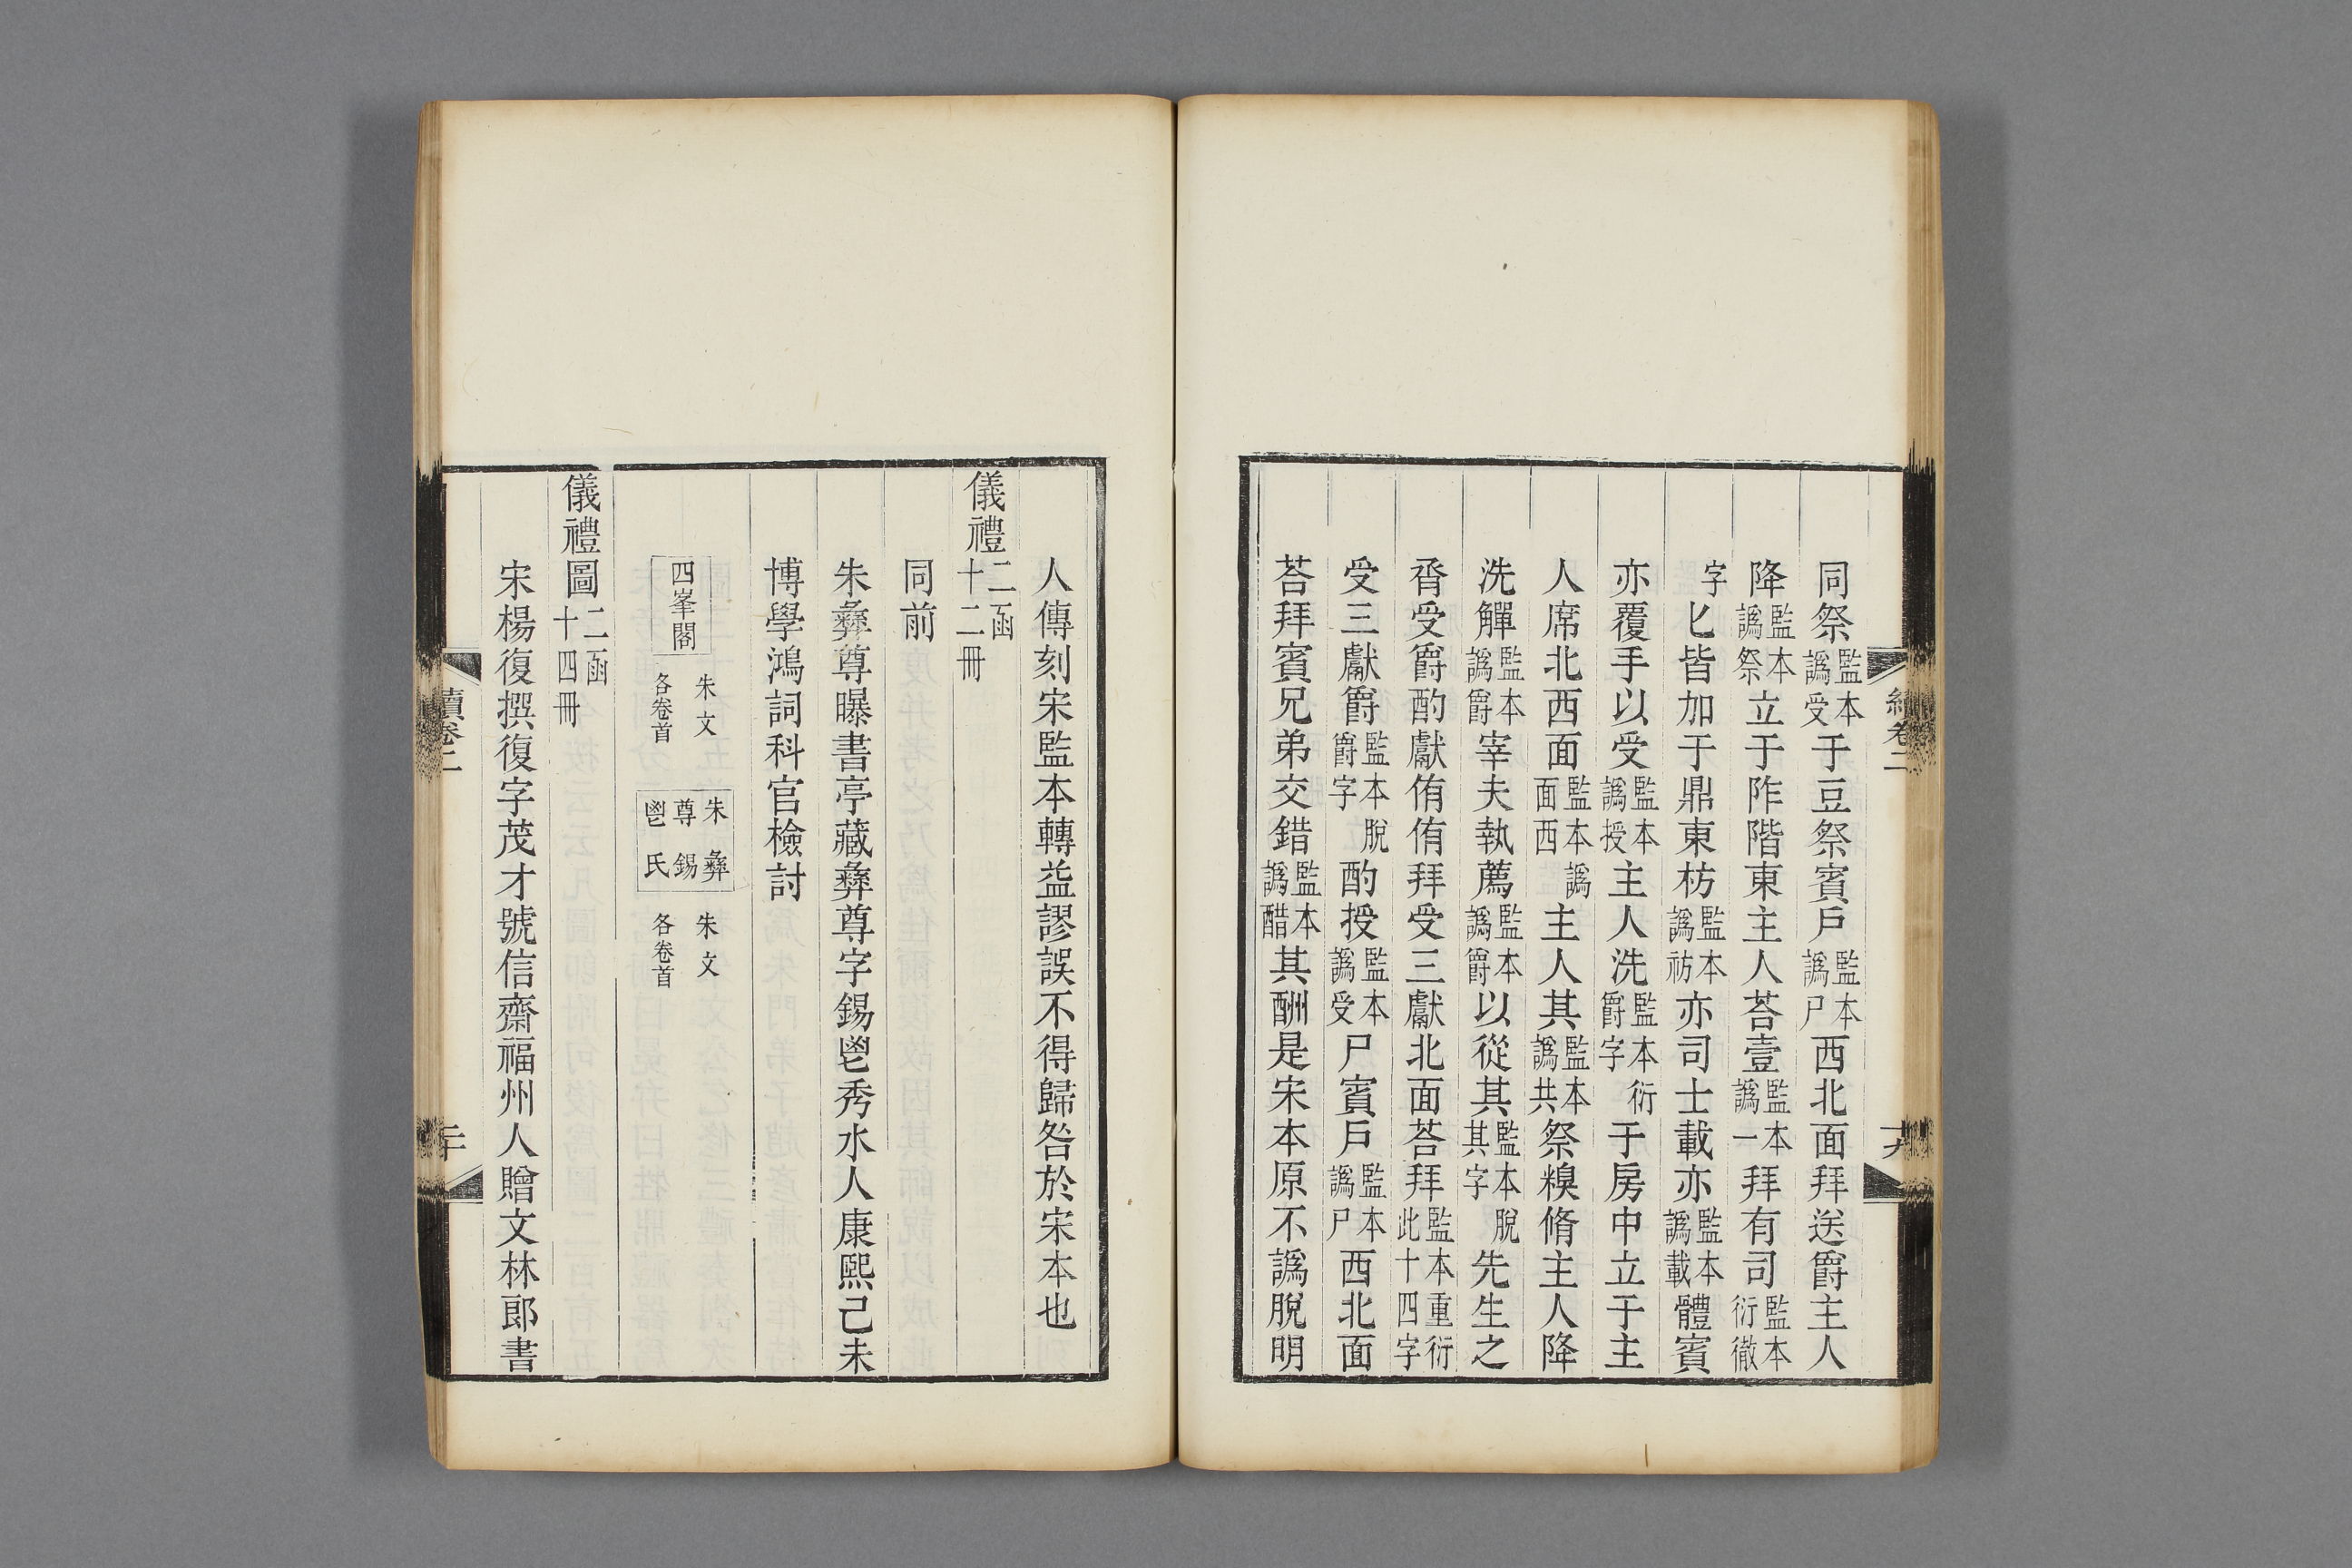 同祭監本譌受于豆祭賓戶監本譌尸西北面拜送爵主人
降監本譌祭立于阼階東主人荅壹監本譌一拜有司監本衍徹
字匕皆加于鼎東枋監本譌祊亦司士載亦監本譌載體賓
亦覆手以受監本譌授主人洗監本衍爵字于房中立于主
人席北西面監本譌面西主人其監本譌共祭糗脩主人降
洗觶監本譌爵宰夫執薦監本譌爵以從其監本脫其字先生之
脀受爵酌獻侑侑拜受三獻北面荅拜監本重衍此十四字
受三獻爵監本脫爵字酌授監本譌受尸賓戶監本譌尸西北面
荅拜賓兄弟交錯監本譌醋其酬是宋本原不譌脫明
續卷二
十九
人傳刻宋監本轉益謬誤不得歸咎於宋本也
儀禮二函十二冊
同前
朱彝尊曝書亭藏彝尊字錫鬯秀水人康熙己未
博學鴻詞科官檢討
四峯閣 朱文各卷首 朱彝尊錫鬯氏 朱文各卷首
儀禮圖二函十四冊
宋楊復撰復字茂才號信齋福州人贈文林郎書
續卷二
二十